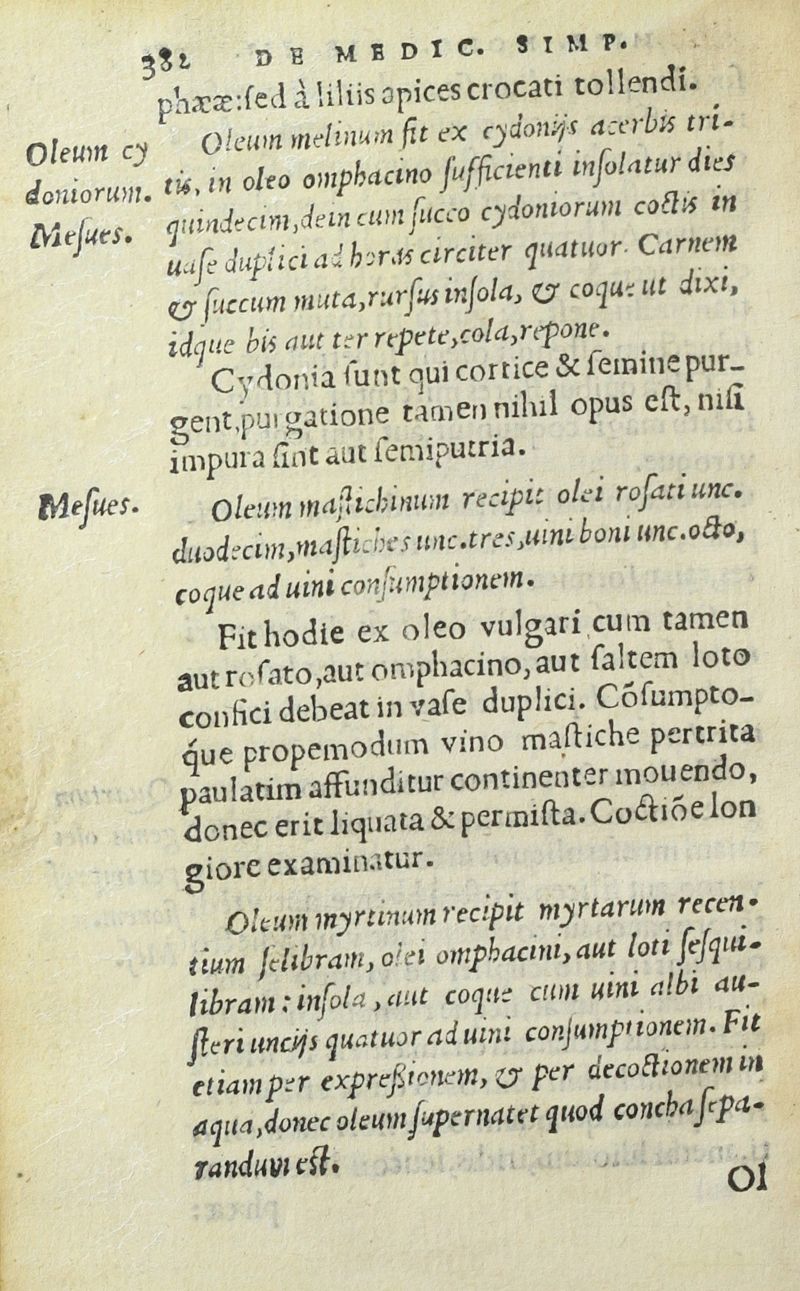 382 DE MEDIC. SIMP.
phææ: sed à liliis apices crocati tollendi.
Oleum cy
doniorum.
Mesues.
Oleum melinum fit ex cydonijs acerbis tri-
tis, in oleo omphacino sufficienti insolatur dies
quindecim, dein cum succo cydoniorum coctis in
uase duplici ad horas circiter quatuor. Carnem
& succum muta, rursus insola, & coque ut dixi,
idque bis aut ter repete, cola, repone.
Cydonia sunt qui cortice & semine pur-
gent, purgatione tamen nihil opus est, nisi
impura sint aut semiputria.
Mesues.
Oleum mastichinum recipit olei rosati unc.
duodecim, mastiches unc. tres, uini boni unc. octo,
coque ad uini consumptionem.
Fit hodie ex oleo vulgari cum tamen
aut rosato, aut omphacino, aut saltem loto
confici debeat in vase duplici. Cõsumpto-
que propemodum vino mastiche pertrita
paulatim affunditur continenter mouendo,
donec erit liquata & permista. Coctiõe lon
giore examinatur.
Oleum myrtinum recipit myrtarum recen-
tium selibram, olei omphacini, aut loti sesqui-
libram: insola, aut coque cum uini albi au-
steri uncijs quatuor ad uini consumptionem. Fit
etiam per expreßionem, & per decoctionem in
aqua, donec oleum supernatet quod concha sepa-
randum est.
Ol